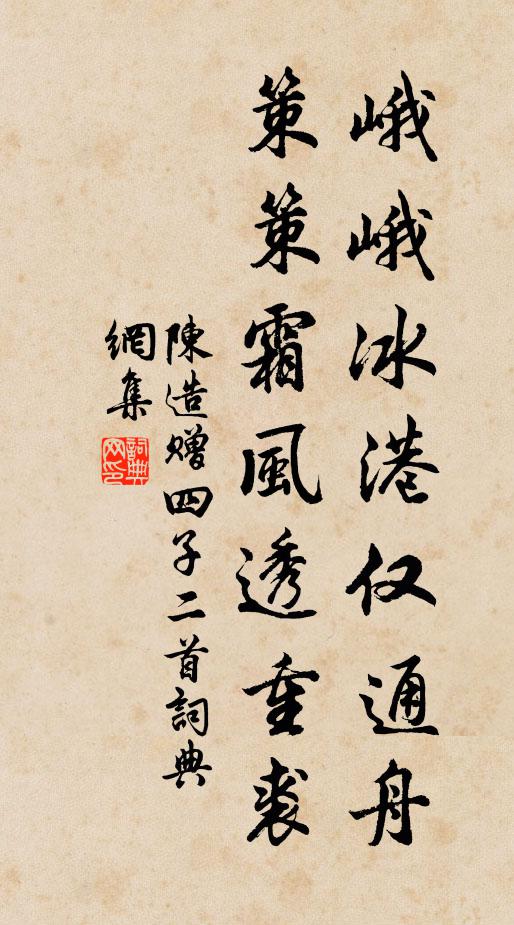 峨峨冰港仅通舟
策策霜風透重裘
陳造贈四子二首詞典
網集
詞典
网印